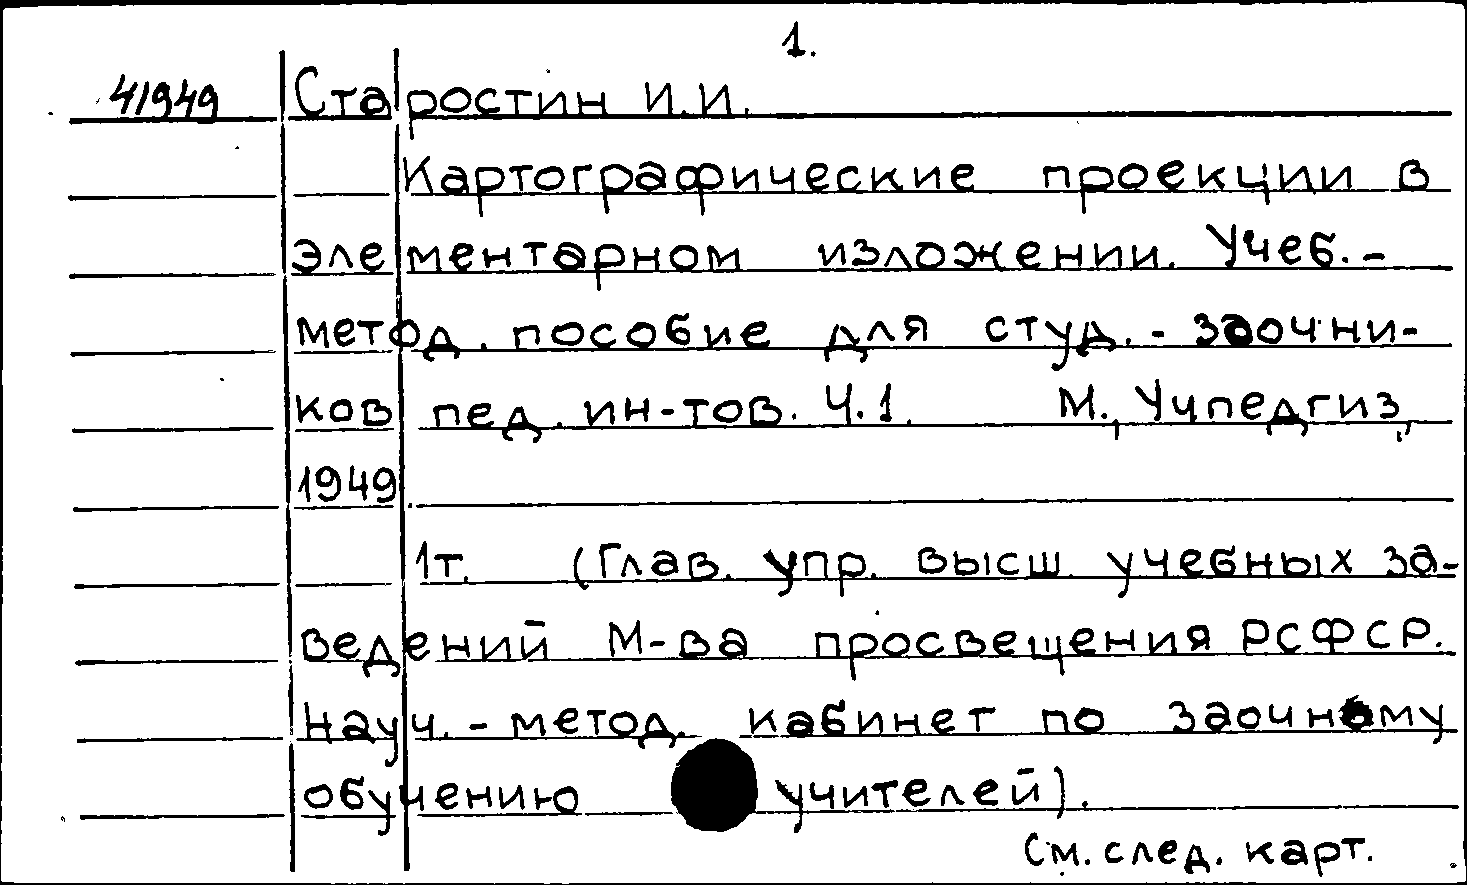 1.
41949 Старостин И.И.
Картографические проекции в
элементарном изложении. Учеб.-
метод. пособие для студ.-заочни-
ков пед. ин-тов. Ч.1. М., Учпедгиз,
1949.
1т. (Глав. упр. высш. учебных за-
ведений М-ва просвещения РСФСР.
Науч.-метод. кабинет по заочному
обучению учителей).
См. след. карт.